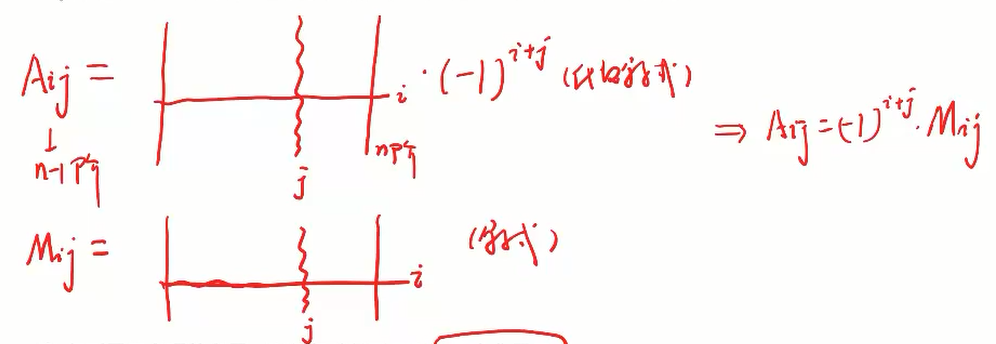 Aij = i · (-1)^{i+j} (代数余子式)
↓
n-1阶 n阶
j
⇒ Aij = (-1)^{i+j} · Mij
Mij = i (余子式)
j